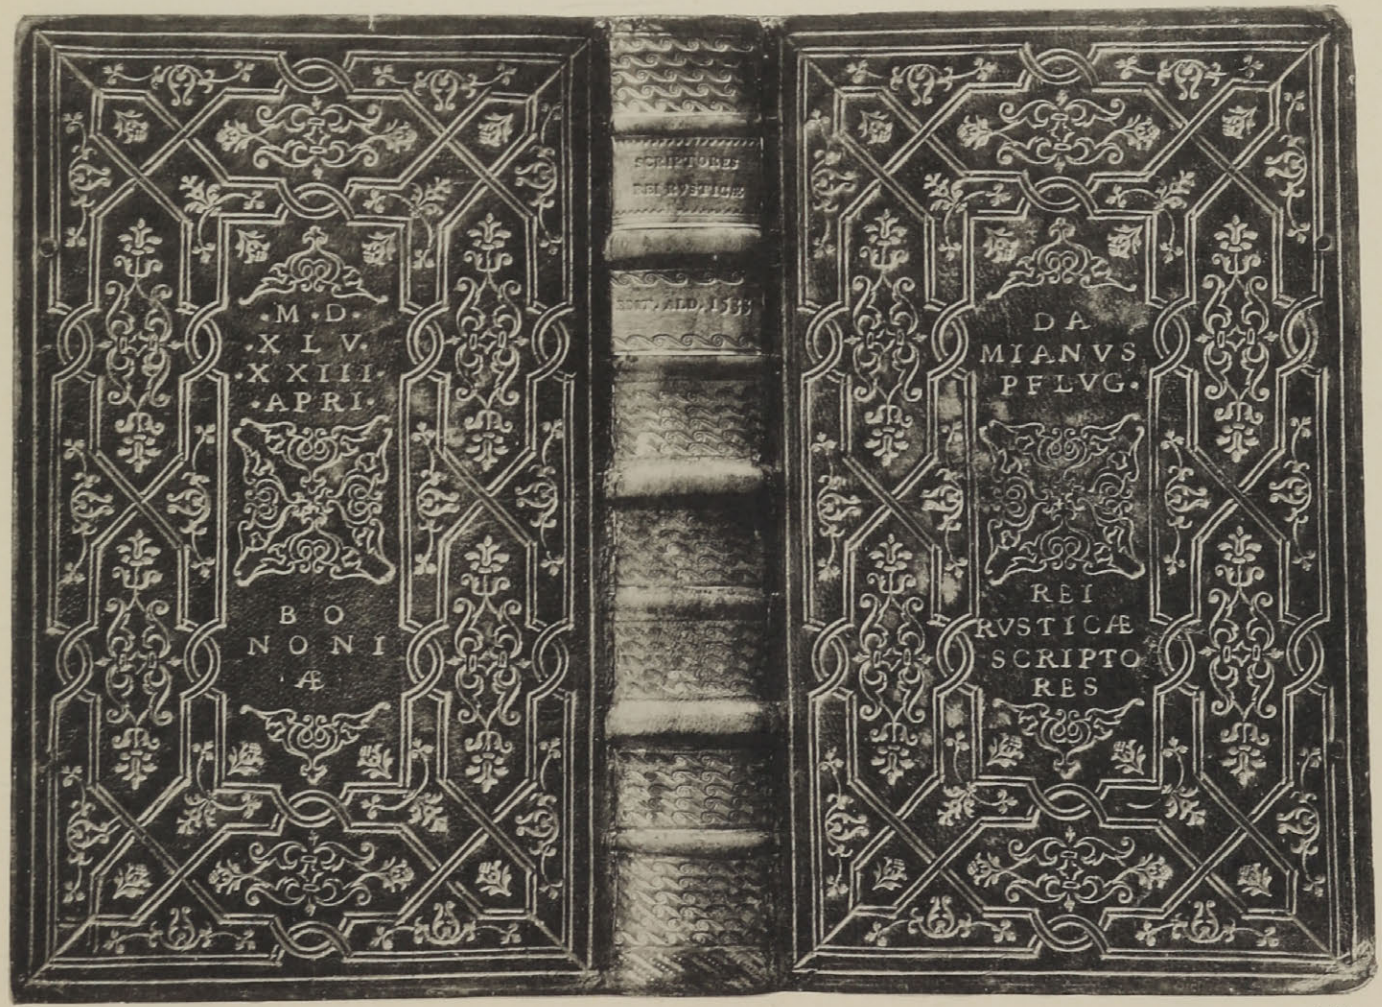 ·M·D·
·X L V·
·X XIII·
·APRI·
B O
N O N I
Æ
SCRIPTORES
REI RVSTICÆ
ALD. 1533
D A
MIANVS
PFLVG·
REI
RVSTICÆ
SCRIPTO
RES